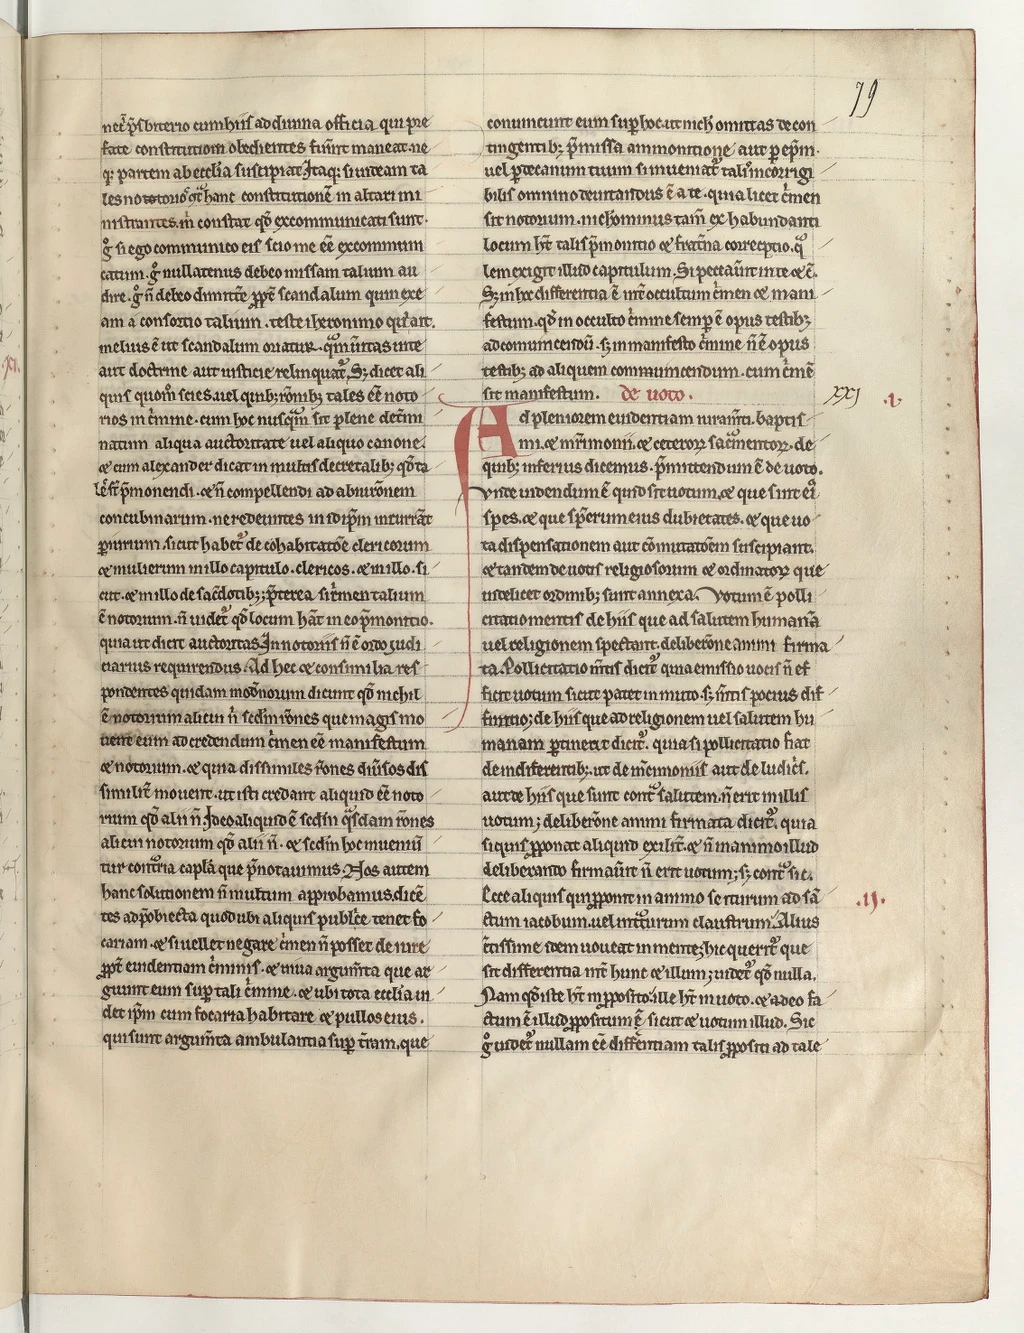 79
nec̄ p̄sbiterio cum hiis ad diuina officia qui pre
fate constitutioni obedientes fuīnt maneat. ne
q; partem ab ecclīa suscipiat. Itaq; si uideam ta
les notorios gͭ hanc constitutionē in altari mi
nistrantes. m̄ constat qđ excommunicati sunt.
g̊ si ego communico eis scio me eē excommuni
catum. g̊ nullatenus debeo missam talium au
dire. g̊ n̄ debeo dimitte᷑ ꝓpt᷑ scandalum quin exe
am a consortio talium. teste iheronimo qͥ ait.
melius ē ut scandalum oriatur. qͣm ūitas uite
aut doctrine aut iusticie relinquat᷑. Sꝫ dicet ali
quis quom̊ scies. uel quibꝫ rōnibꝫ tales eē noto
rios in cͥmine. cum hoc nusqͣm sit plene det᷑mi
natum aliqua auctoritate uel aliquo canone.
⁊ cum alexander dicat in multis decretalibꝫ qđ ta
les s̄t p̄monendi. ⁊ n̄ compellendi ad abiurōnem
concubinarum. ne redeuntes in id ip̄m incurrāt
ꝑiurium. sicut habet᷑ de cohabitatōe clericorum
⁊ mulierum in illo capitulo. clericos. ⁊ in illo. si
cut. ⁊ in illo de sac̄dotibꝫ; p̄terea si cͥmen talium
ē notorum. n̄ uidet᷑ qđ locum hāt in eo p̄monitio.
quia ut dicit auctoritas. In notoriis n̄ ē ordo iudi
ciarius requirendus. Ad hec ⁊ consimilia res
pondentes quidam mod̄norum dicunt qđ nichil
ē notorium alicui n̄ sedm rōnes que magis mo
uent eum ad credendum cͥmen eē manifestum
⁊ notorium. ⁊ quia dissimiles rōnes diūsos dis
simili᷑t mouent. ut isti credant aliquid eē noto
rium qđ alii n̄. Ideo aliquid ē sedm qͦsdam rōnes
alicui notorium qđ alii n̄. ⁊ sedm hoc inueniū
tur contͣria capl̄a que p̄notauimus. Nos autem
hanc solutionem n̄ multum approbamus. dicē
tes ad p̄obiecta quod ubi aliquis publice tenet fo
cariam. ⁊ si uellet negare cͥmen n̄ posset de iure
ꝓpt᷑ euidentiam cͥminis. ⁊ uiua argum̄ta que ar
guunt eum sup̱ tali cͥmine. ⁊ ubi tota ecclīa ui
det ip̄m cum focaria habitare ⁊ pullos eius.
qui sunt argum̄ta ambulantia sup̱ t᷑ram. que
conuincunt eum sup̱ hoc. ut nich̄ omittas de con
tingentibꝫ p̄missa ammonitione aut p̱ ep̄m.
uel p̱ decanum tuum si inueniat᷑ talis incorrigi
bilis omnino deuitandus ē a te. quia licet cͥmen
sit notorium. nich̄ominus tam̄ ex habundanti
locum h̄t talis p̄monitio ⁊ fraťna correptio. qͣ
lem exigit illud capitulum. Si peccau᷑it in te ⁊ c̄.
Sꝫ in hoc differentia ē int᷑ occultum cͥmen ⁊ mani
festum. qđ in occulto cͥmine semp̱ ē opus testibꝫ
ad conuincendū. sꝫ in manifesto cͥmine n̄ ē opus
testibꝫ ad aliquem conuincendum. cum cͥmē
sit manifestum. de uoto. XXI .i.
Ad pleniorem euidentiam iuram̄ti. baptis
mi. ⁊ mr̄imonii. ⁊ ceteroꝝ sacͣmentoꝝ. de
quibꝫ inferius dicemus. p̄mittendum ē de uoto.
Vnde uidendum ē quid sit uotum. ⁊ que sint ei᷑
spēs. ⁊ que sp̄erim eius dubietates. ⁊ que uo
ta dispensationem aut cōmutatōem suscipiant.
⁊ tandem de uotis religiosorum ⁊ ordinatoꝝ que
uidelicet ordinibꝫ sunt annexa. Votum ē polli
citatio mentis de hiis que ad salutem humanā
uel religionem spectant. deliberōne animi firma
ta. Pollicitatio m̄tis dicit᷑ quia emissio uocis n̄ ef
ficit uotum sicut patet in muto. sꝫ m̄tis pocius dif
finitio; de hiis que ad religionem uel salutem hu
manam p̱tinet dicit᷑. quia si pollicitatio fiat
de indifferentibꝫ. ut de m̄cimoniis aut de ludicͥs.
aut de hiis que sunt contͣ salutem. n̄ erit in illis
uotum; deliberōne animi firmata dicit᷑. quia
si quis ꝓponat aliquid exili᷑t. ⁊ n̄ in animo illud
deliberando firmau᷑it n̄ erit uotum; sꝫ contͣ sic.
Ecce aliquis qui ꝓponit in animo se iturum ad sā .ij.
ctum iacobum. uel int᷑turum claustrum. Alius
c᷑tissime idem uoueat in mente; hic querit᷑ que
sit differentia int᷑ hunc ⁊ illum; uidet᷑ qđ nulla.
Nam qđ iste h̄t in ꝓposito. ille h̄t in uoto. ⁊ adeo fa
ctum ē illud ꝓpositum ē sicut ⁊ uotum illud. Sic
g̊ uidet᷑ nullam eē differentiam talis ꝓpositi ad tale